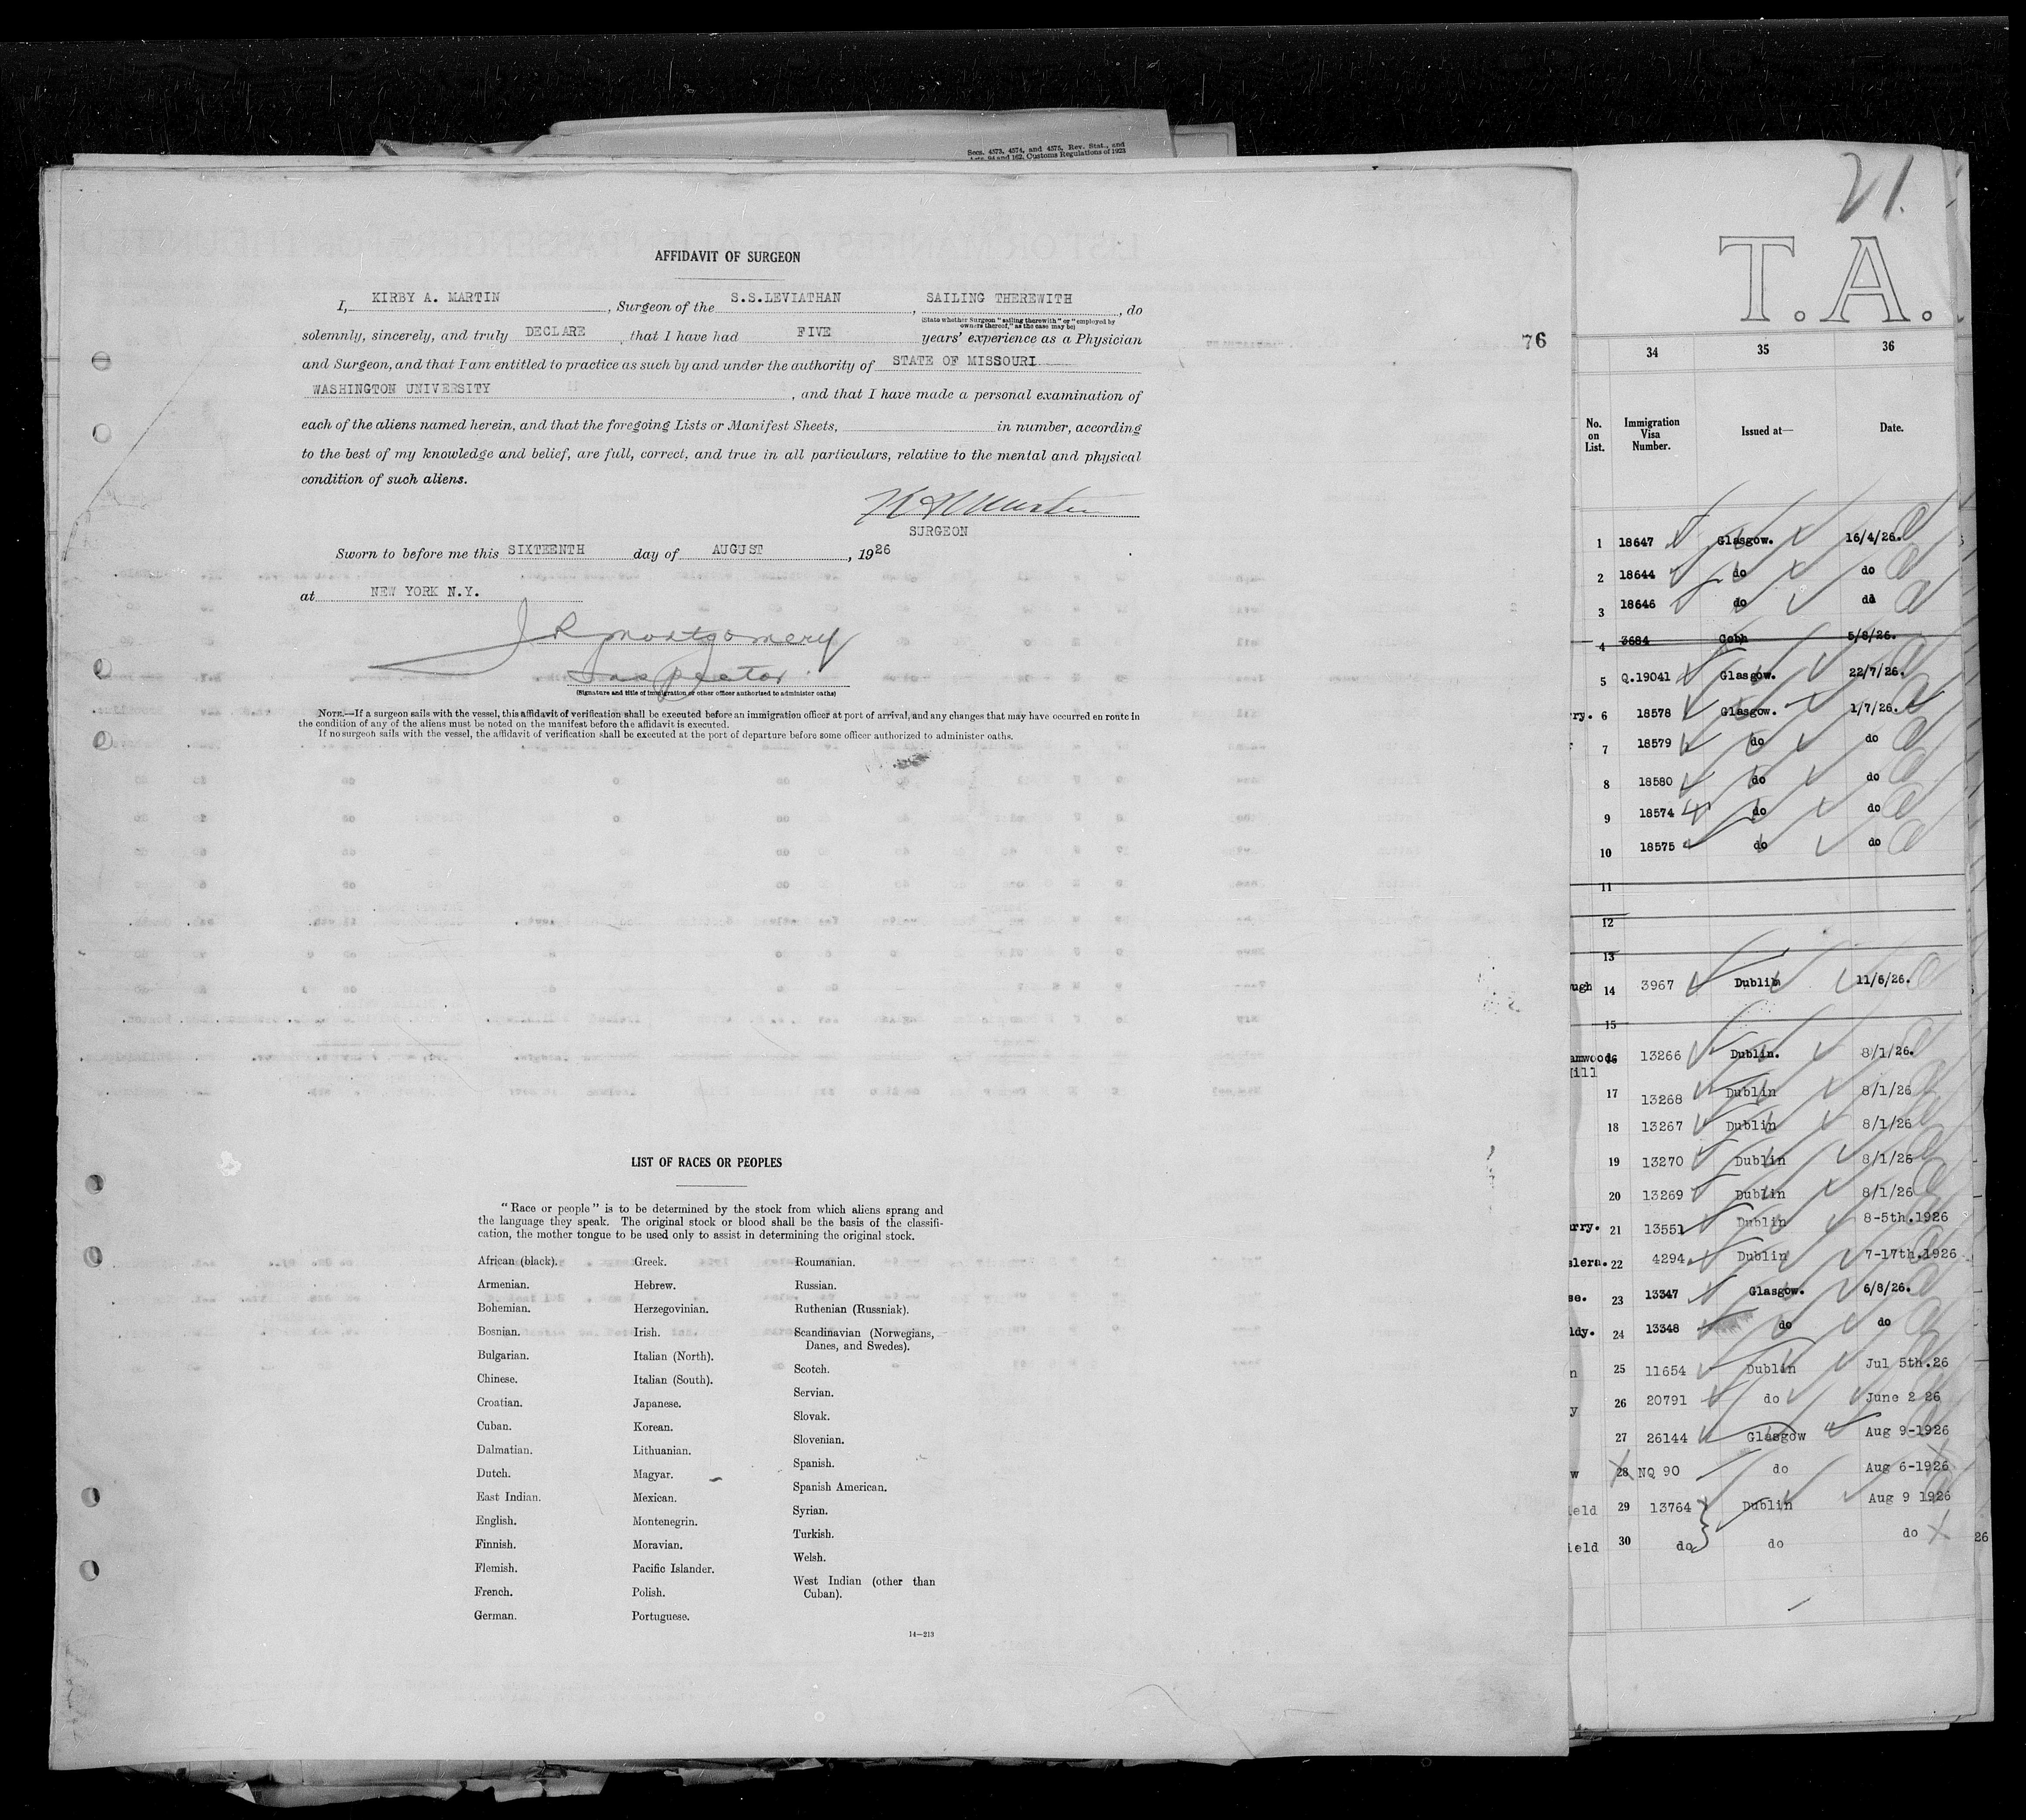 Secs. 4573, 4574, and 4575, Rev. Stat., and
Arts. 94 and 162, Customs Regulations of 1923
AFFIDAVIT OF SURGEON
I, KIRBY A. MARTIN , Surgeon of the S.S.LEVIATHAN , SAILING THEREWITH , do
(State whether Surgeon "sailing therewith" or "employed by
owners thereof," as the case may be)
solemnly, sincerely, and truly DECLARE , that I have had FIVE years' experience as a Physician
and Surgeon, and that I am entitled to practice as such by and under the authority of STATE OF MISSOURI
WASHINGTON UNIVERSITY , and that I have made a personal examination of
each of the aliens named herein, and that the foregoing Lists or Manifest Sheets, in number, according
to the best of my knowledge and belief, are full, correct, and true in all particulars, relative to the mental and physical
condition of such aliens.
SURGEON
Sworn to before me this SIXTEENTH day of AUGUST , 1926
at NEW YORK N.Y.
J R Montgomery
Inspector
(Signature and title of immigration or other officer authorized to administer oaths)
NOTE.—If a surgeon sails with the vessel, this affidavit of verification shall be executed before an immigration officer at port of arrival, and any changes that may have occurred en route in
the condition of any of the aliens must be noted on the manifest before the affidavit is executed.
If no surgeon sails with the vessel, the affidavit of verification shall be executed at the port of departure before some officer authorized to administer oaths.
76
LIST OF RACES OR PEOPLES
"Race or people" is to be determined by the stock from which aliens sprang and
the language they speak. The original stock or blood shall be the basis of the classifi-
cation, the mother tongue to be used only to assist in determining the original stock.
African (black).
Armenian.
Bohemian.
Bosnian.
Bulgarian.
Chinese.
Croatian.
Cuban.
Dalmatian.
Dutch.
East Indian.
English.
Finnish.
Flemish.
French.
German.
Greek.
Hebrew.
Herzegovinian.
Irish.
Italian (North).
Italian (South).
Japanese.
Korean.
Lithuanian.
Magyar.
Mexican.
Montenegrin.
Moravian.
Pacific Islander.
Polish.
Portuguese.
Roumanian.
Russian.
Ruthenian (Russniak).
Scandinavian (Norwegians,
Danes, and Swedes).
Scotch.
Servian.
Slovak.
Slovenian.
Spanish.
Spanish American.
Syrian.
Turkish.
Welsh.
West Indian (other than
Cuban).
14—213
21.
T.A.
34 35 36
No. on List. Immigration Visa Number. Issued at— Date.
1 18647 Glasgow. 16/4/26.
2 18644 do do
3 18646 do do
4 3684 Cobh 5/8/26.
5 Q.19041 Glasgow. 22/7/26.
rry. 6 18578 Glasgow. 1/7/26.
7 18579 do do
8 18580 do do
9 18574 do do
10 18575 do do
11
12
13
ugh 14 3967 Dublin 11/6/26.
15
amwoods 16 13266 Dublin. 8/1/26.
Hill
17 13268 Dublin 8/1/26
18 13267 Dublin 8/1/26
19 13270 Dublin 8/1/26
20 13269 Dublin 8/1/26
arry. 21 13551 Dublin 8-5th.1926
alera. 22 4294 Dublin 7-17th.1926
se. 23 13347 Glasgow. 6/8/26.
ldy. 24 13348 do do
n 25 11654 Dublin Jul 5th.26
y 26 20791 do June 2 26
27 26144 Glasgow Aug 9-1926
w 28 NQ 90 do Aug 6-1926
ield 29 13764 Dublin Aug 9 1926
ield 30 do do do
26